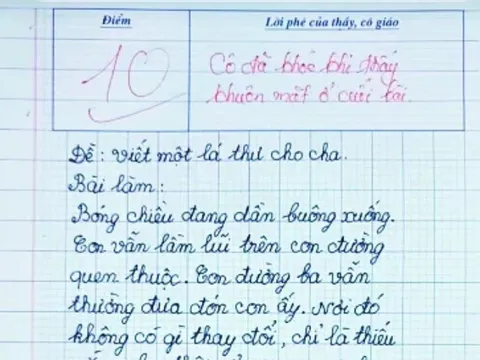 Điểm
Lời phê của thầy, cô giáo
10
Cô đã khóc khi thấy
khuôn mặt ở cuối bài.
Đề: Viết một lá thư cho cha.
Bài làm:
Bóng chiều đang dần buông xuống.
Con vẫn lầm lũi trên con đường
quen thuộc. Con đường ba vẫn
thường đưa đón con ấy. Nơi đó
không có gì thay đổi, chỉ là thiếu